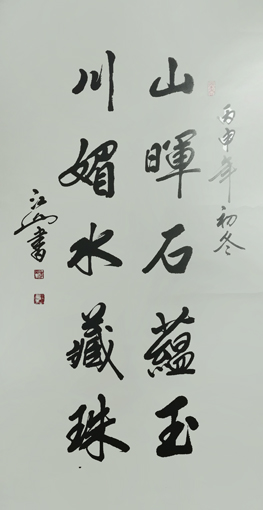 丙申年初冬
山暉石蘊玉
川媚水藏珠
江山書